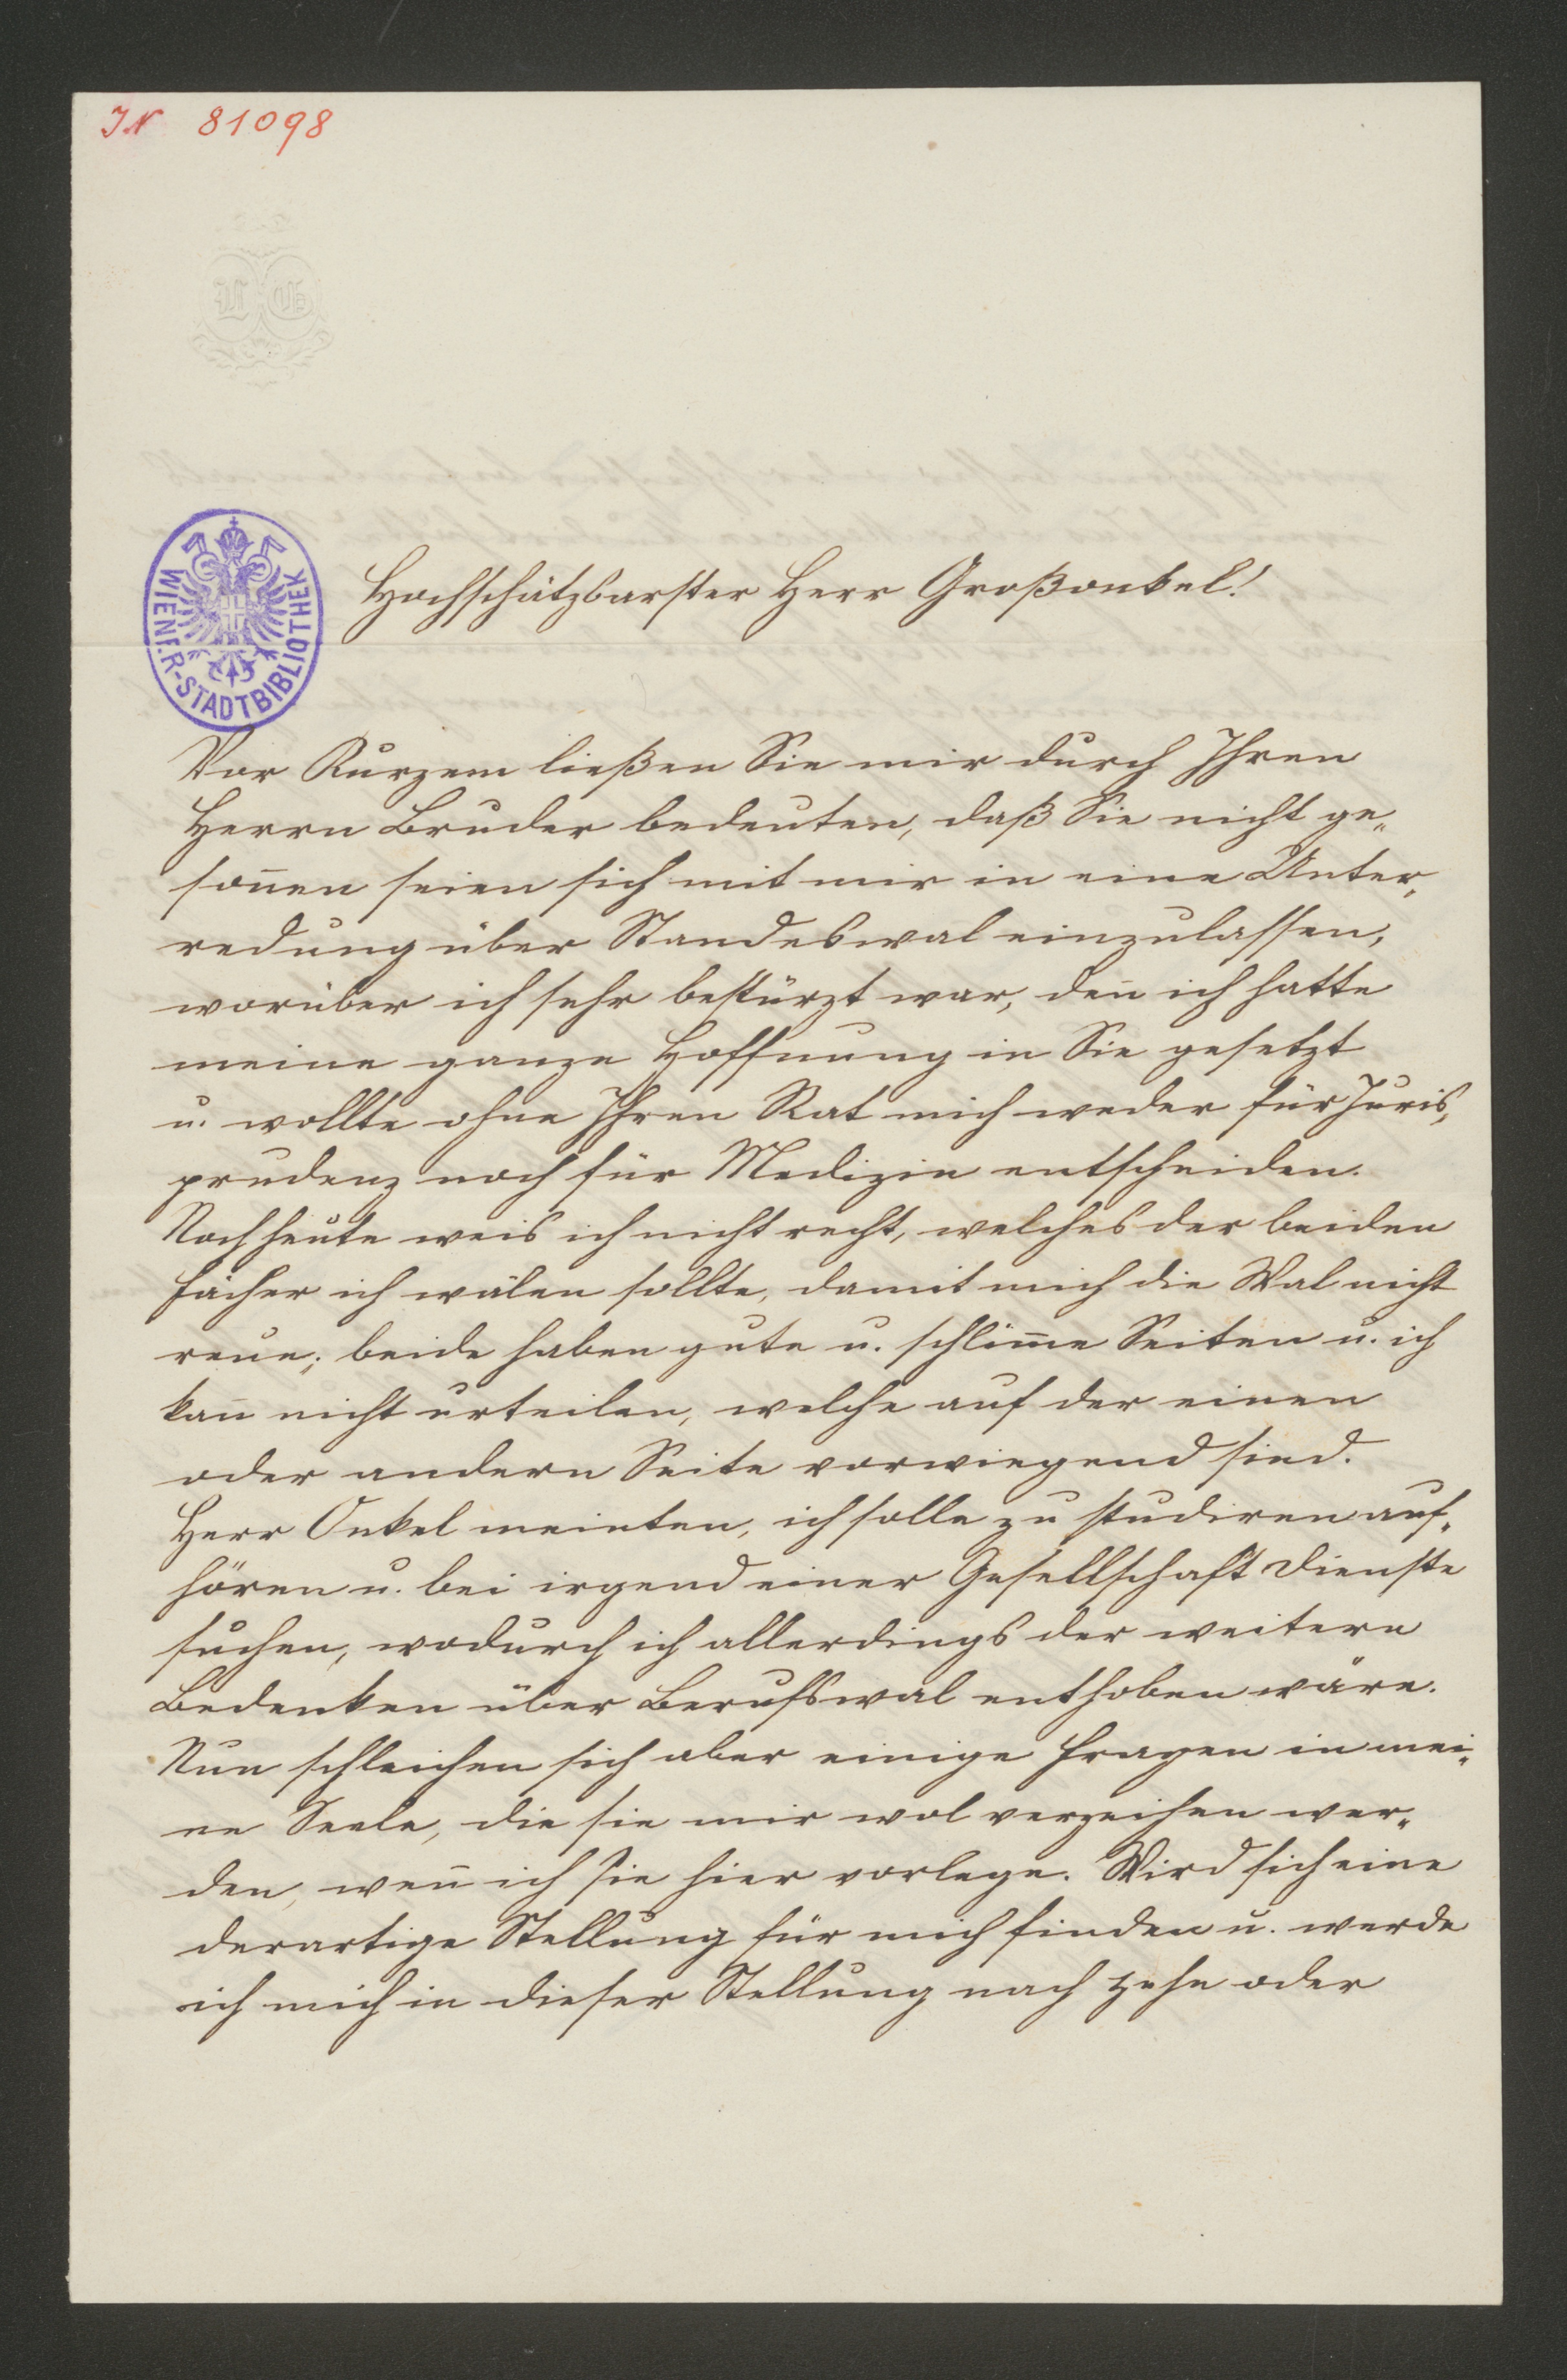 IN 81098
L G
WIENER-STADTBIBLIOTHEK
Hochschätzbarster Herr Großonkel!
Vor Kurzem ließen Sie mir durch Ihren
Herrn Bruder bedeuten, daß Sie nicht ge„
son̄en seien sich mit mir in eine Unter„
redung über Standeswal einzulassen,
worüber ich sehr bestürzt war, den̄ ich hatte
meine ganze Hoffnung in Sie gesetzt
u. wollte ohne Ihren Rat mich weder für Juris„
prudenz noch für Medizin entscheiden.
Noch heute weis ich nicht recht, welches der beiden
Fächer ich wälen sollte, damit mich die Wal nicht
reue; beide haben gute u. schlim̄e Seiten u. ich
kan̄ nicht urteilen, welche auf der einen
oder andern Seite vorwiegend sind.
Herr Onkel meinten, ich solle zu studiren auf„
hören u. bei irgend einer Gesellschaft Dienste
suchen, wodurch ich allerdings der weitern
Bedenken über Berufswal enthoben wäre.
Nun schleichen sich aber einige Fragen in mei„
ne Seele, die sie mir wol verzeihen wer„
den, wen̄ ich sie hier vorlege. Wird sich eine
derartige Stellung für mich finden u. werde
ich mich in dieser Stellung nach zehn oder